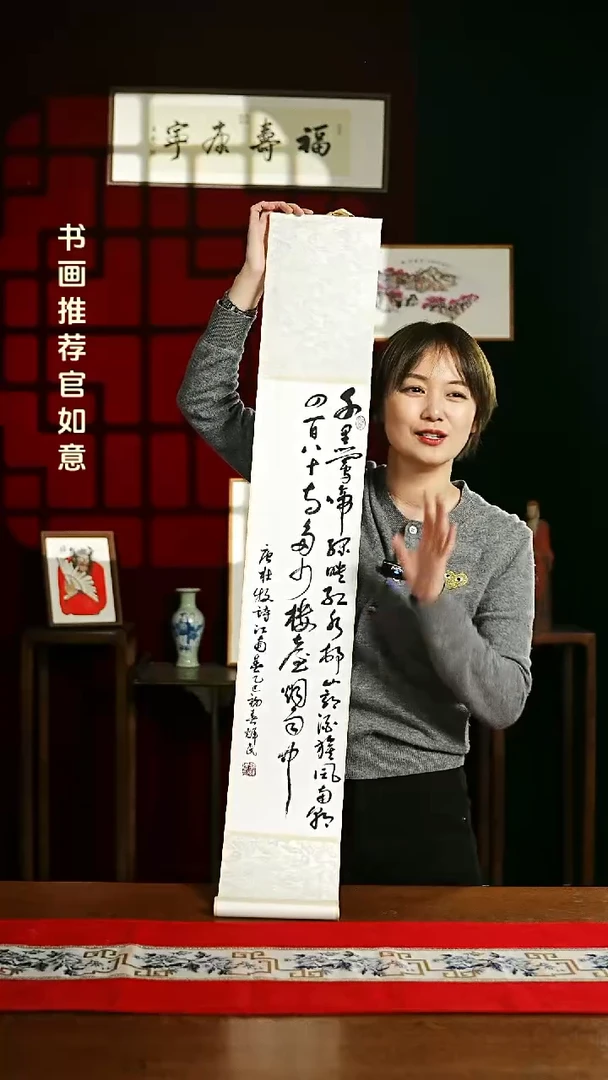 福壽康寧
书画推荐官如意
千里鶯啼綠映紅水邨山郭酒旗風南朝
四百八十寺多少樓臺烟雨中
唐杜牧詩江南春乙巳初春輝民